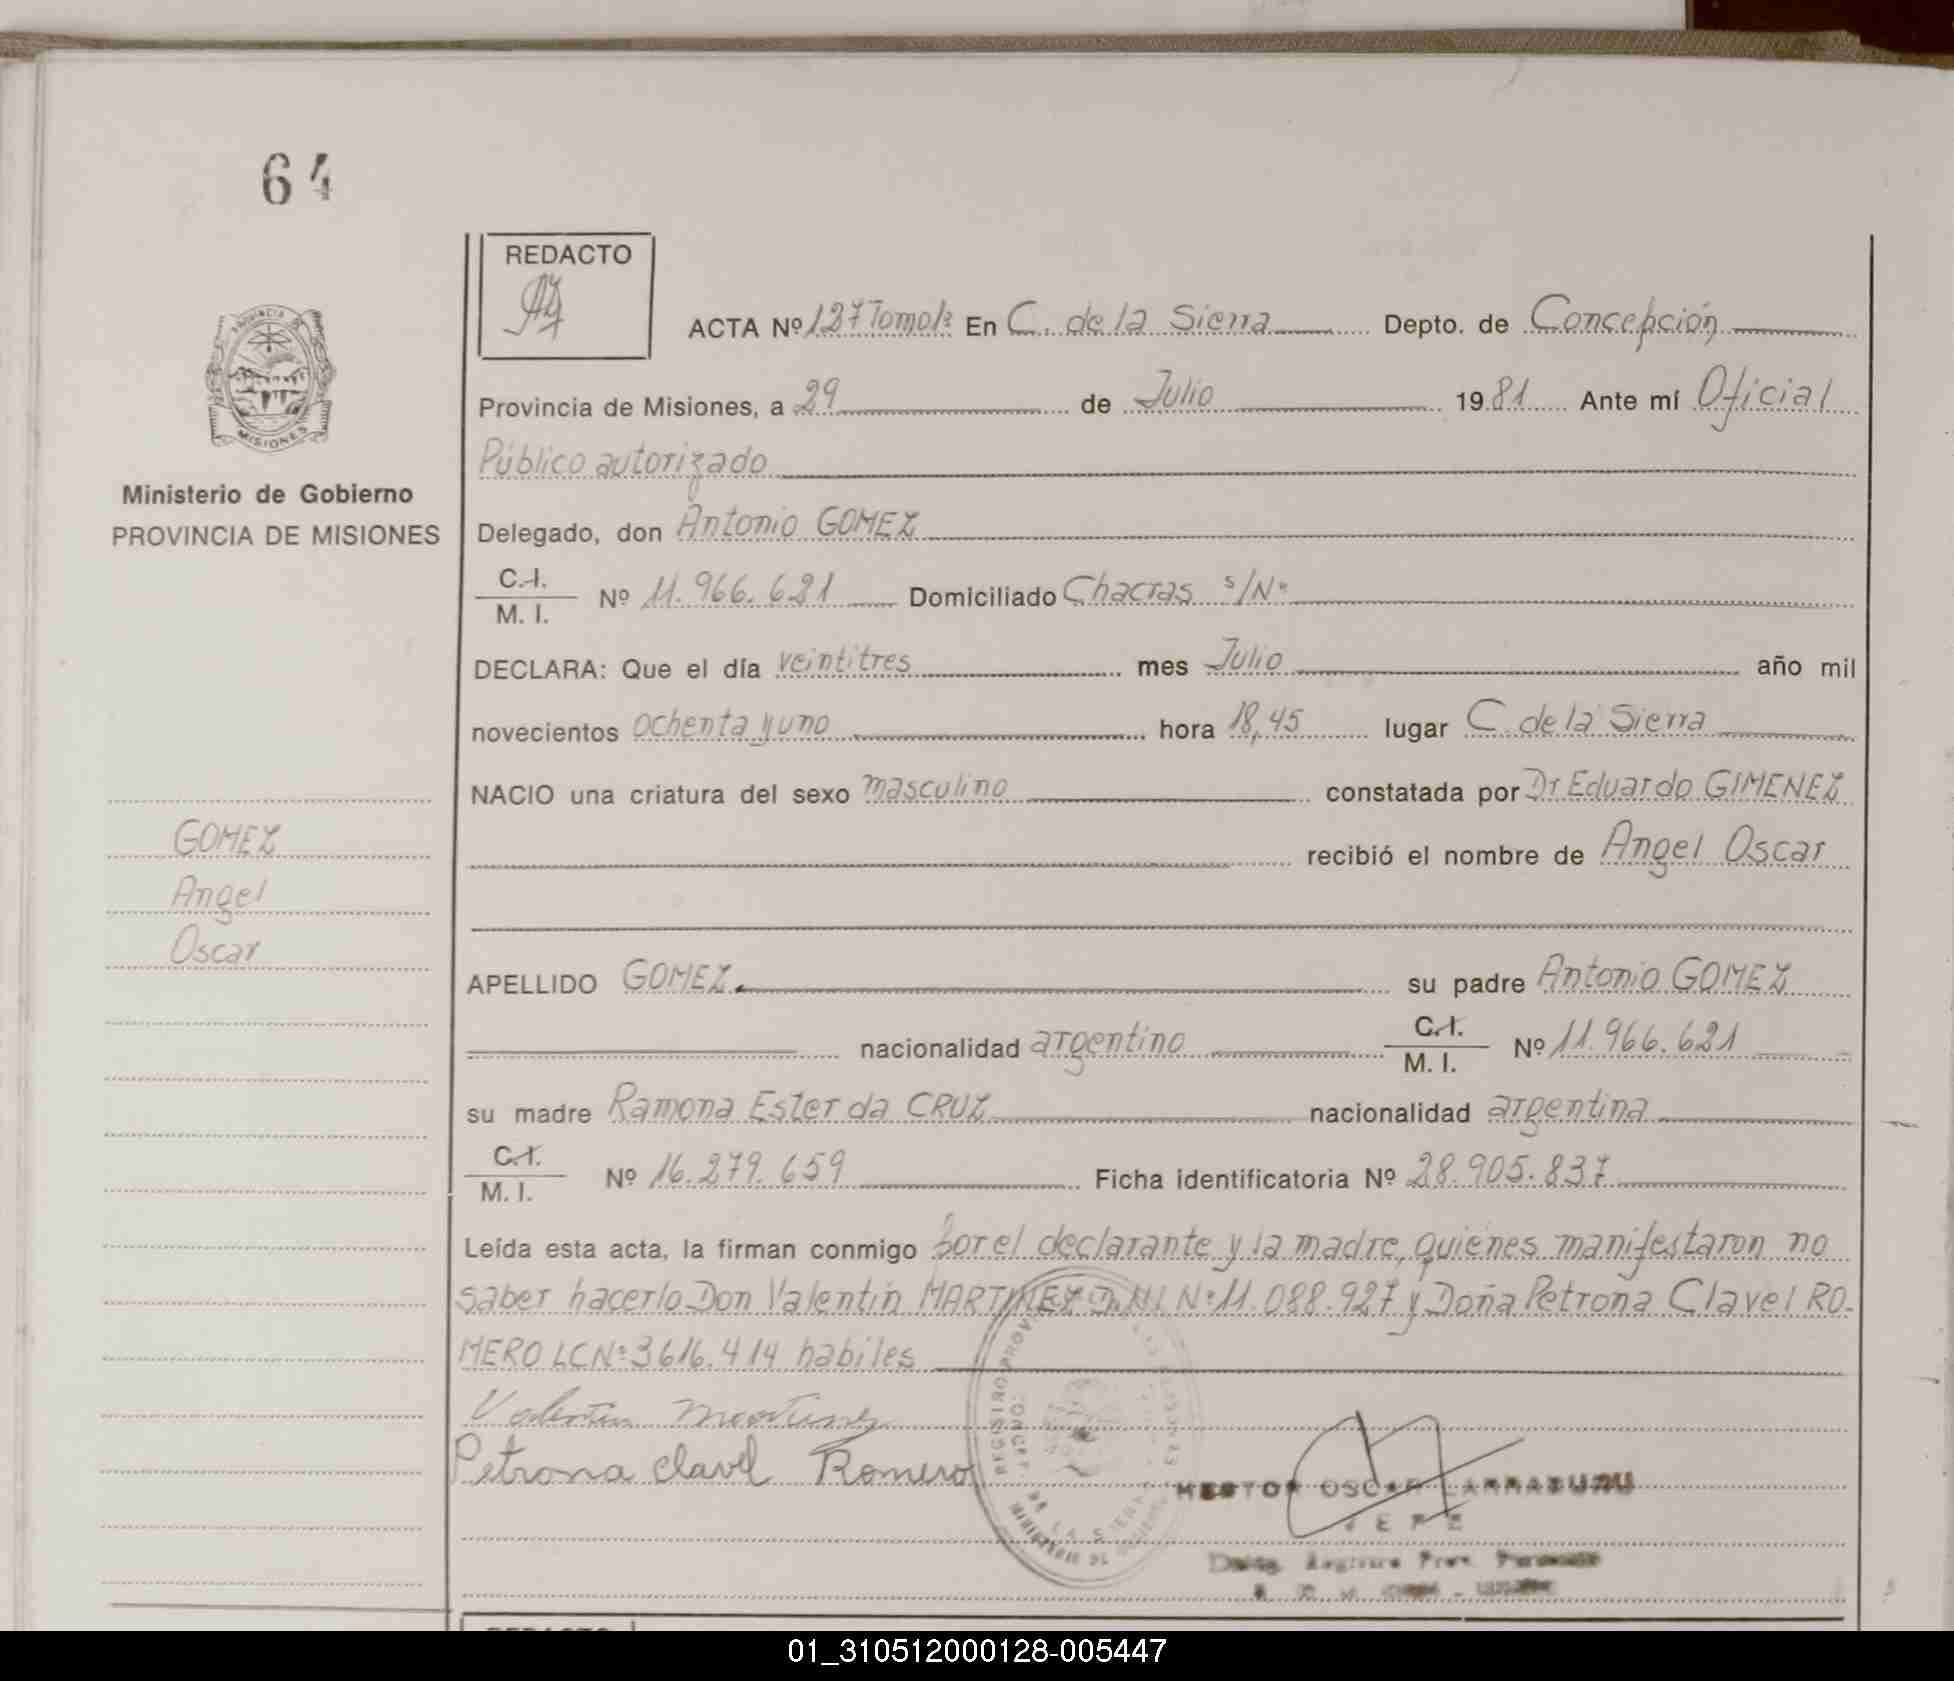 64
REDACTO
ACTA Nº 127 Tomo 1º En C. de la Sierra Depto. de Concepción
Provincia de Misiones, a 29 de Julio 1981 Ante mí Oficial
Público autorizado
Ministerio de Gobierno
PROVINCIA DE MISIONES
Delegado, don Antonio GOMEZ
C.I.
M. I. Nº 11.966.621 Domiciliado Chacras s/Nº
DECLARA: Que el día veintitres mes Julio año mil
novecientos ochenta y uno hora 18,45 lugar C. de la Sierra
NACIO una criatura del sexo masculino constatada por Dr Eduardo GIMENEZ
recibió el nombre de Angel Oscar
GOMEZ
Angel
Oscar
APELLIDO GOMEZ su padre Antonio GOMEZ
nacionalidad argentino C.I.
M. I. Nº 11.966.621
su madre Ramona Ester da CRUZ nacionalidad argentina
C.I.
M. I. Nº 16.279.659 Ficha identificatoria Nº 28.905.837
Leída esta acta, la firman conmigo por el declarante y la madre, quienes manifestaron no
saber hacerlo Don Valentín MARTINEZ D.N.I. Nº 11.088.927 y Doña Petrona Clavel RO-
MERO LC Nº 3616.414 habiles
Valentin Martinez
Petrona Clavel Romero
OSCAR LARRABURU
JEFE
MISIONES
01_310512000128-005447